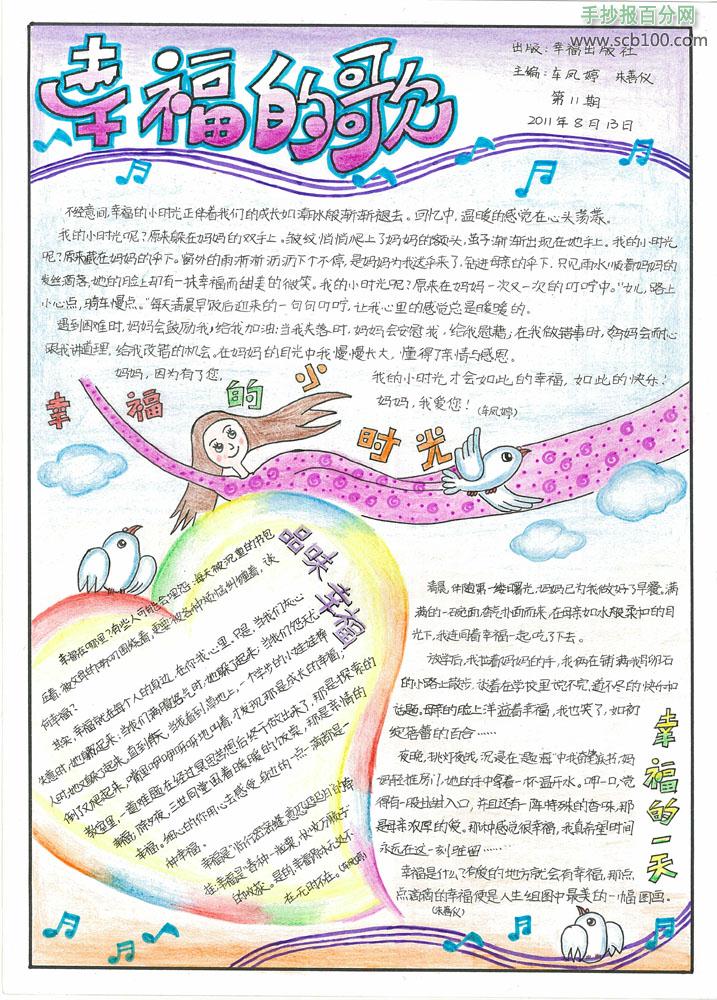 手抄报百分网
www.scb100.com
幸福的歌
出版：幸福出版社
主编：车凤婷 朱善仪
第11期
2011年8月13日
不经意间，幸福的小时光正伴着我们的成长如潮水般渐渐褪去。回忆中，温暖的感觉在心头荡漾。
我的小时光呢？原来躲在妈妈的双手上。皱纹悄悄爬上了妈妈的额头，茧子渐渐出现在她手上。我的小时光
呢？原来藏在妈妈的伞下。窗外的雨淅淅沥沥下个不停，是妈妈为我送伞来了，钻进母亲的伞下，只见雨水顺着妈妈的
发丝滴落，她的脸上却有一抹幸福而甜美的微笑。我的小时光呢？原来在妈妈一次又一次的叮咛中。“女儿，路上
小心点，骑车慢点。”每天清晨早饭后迎来的一句句叮咛，让我心里的感觉总是暖暖的。
遇到困难时，妈妈会鼓励我，给我加油；当我失落时，妈妈会安慰我，给我慰藉；在我做错事时，妈妈会耐心
跟我讲道理，给我改错的机会。在妈妈的目光中我慢慢长大，懂得了亲情与感恩。
妈妈，因为有了您，我的小时光才会如此的幸福，如此的快乐！
妈妈，我爱您！（车凤婷）
幸福的小时光
品味幸福
幸福在哪里？有些人可能会埋怨：每天被沉重的书包
压着，被父母的唠叨围绕着，更要被各种烦恼纠缠着，谈
何幸福？
其实，幸福就在每个人的身边，在你我心里。只是，当我们灰心
失意时，他躲起来；当我们两隔怒气时，他躲了起来；当我们怨天尤
人时，他又躲了起来。直到每天，当我看到草地上，一个学步的小娃娃摔
倒了又爬起来，嘴里咿咿呀呀地叫着，才发现，那是成长的幸福；
教室里，一道难题在经过冥思苦想后终于放出来了，那是探索的
幸福；除夕夜，三世同堂围着暖暖的饭桌，那是亲情的
幸福。细心的你用心去感受身边的一点一滴都是一
种幸福。
的收获。是的，幸福原来无处不
在，无时不在。（车凤婷）
清晨，伴随第一缕曙光，妈妈已为我做好了早餐。满
满的一碗面，香气扑面而来，在母亲如水般柔和的目
光下，我连同着幸福一起吃了下去。
放学后，我拉着妈妈的手，我俩在铺满鹅卵石
的小路上散步，谈着在学校里说不完，道不尽的快乐和
话题，母亲的脸上洋溢着幸福，我也笑了，如初
绽蓓蕾的百合……
夜晚，挑灯夜战，沉浸在“题海”中我奋笔疾书，妈
妈轻推房门，她的手中拿着一杯温开水。呷一口，觉
得有一股甜甜入口，并且还有一阵特殊的香味，那
是母亲浓厚的爱。那种感觉很幸福，我真希望时间
永远在这一刻驻留……
幸福是什么？有爱的地方就会有幸福，那点
点滴滴的幸福便是人生组图中最美的一幅图画。
（朱善仪）
幸福的一天